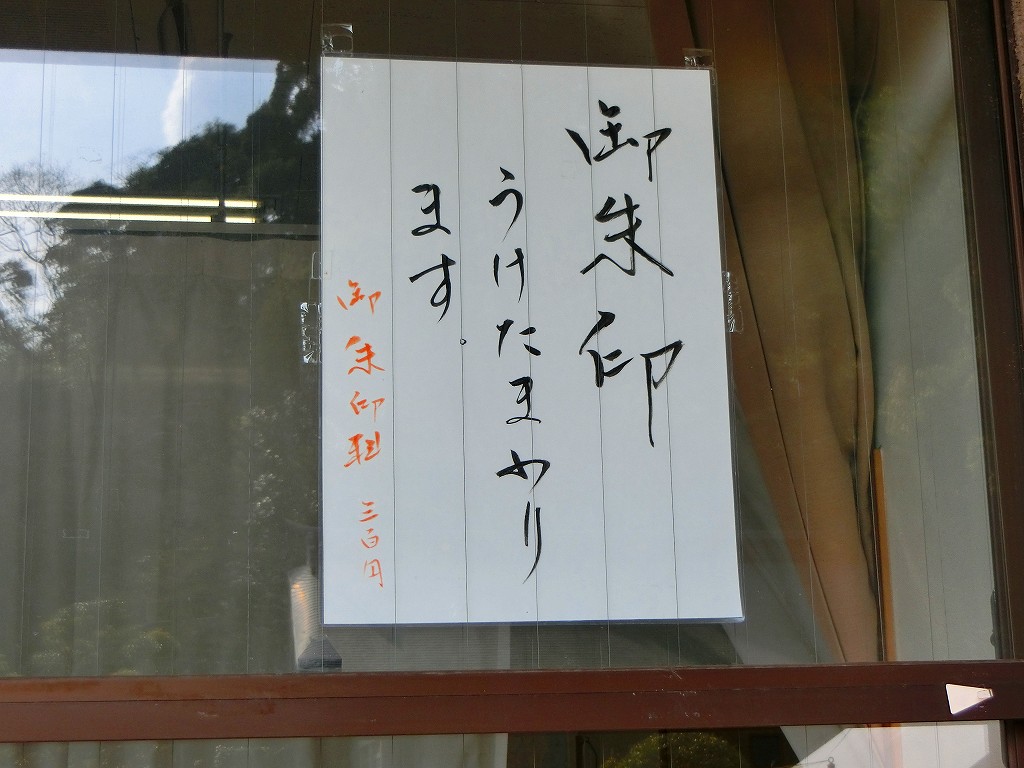 御朱印
うけたまわり
ます。
御朱印料 三百円